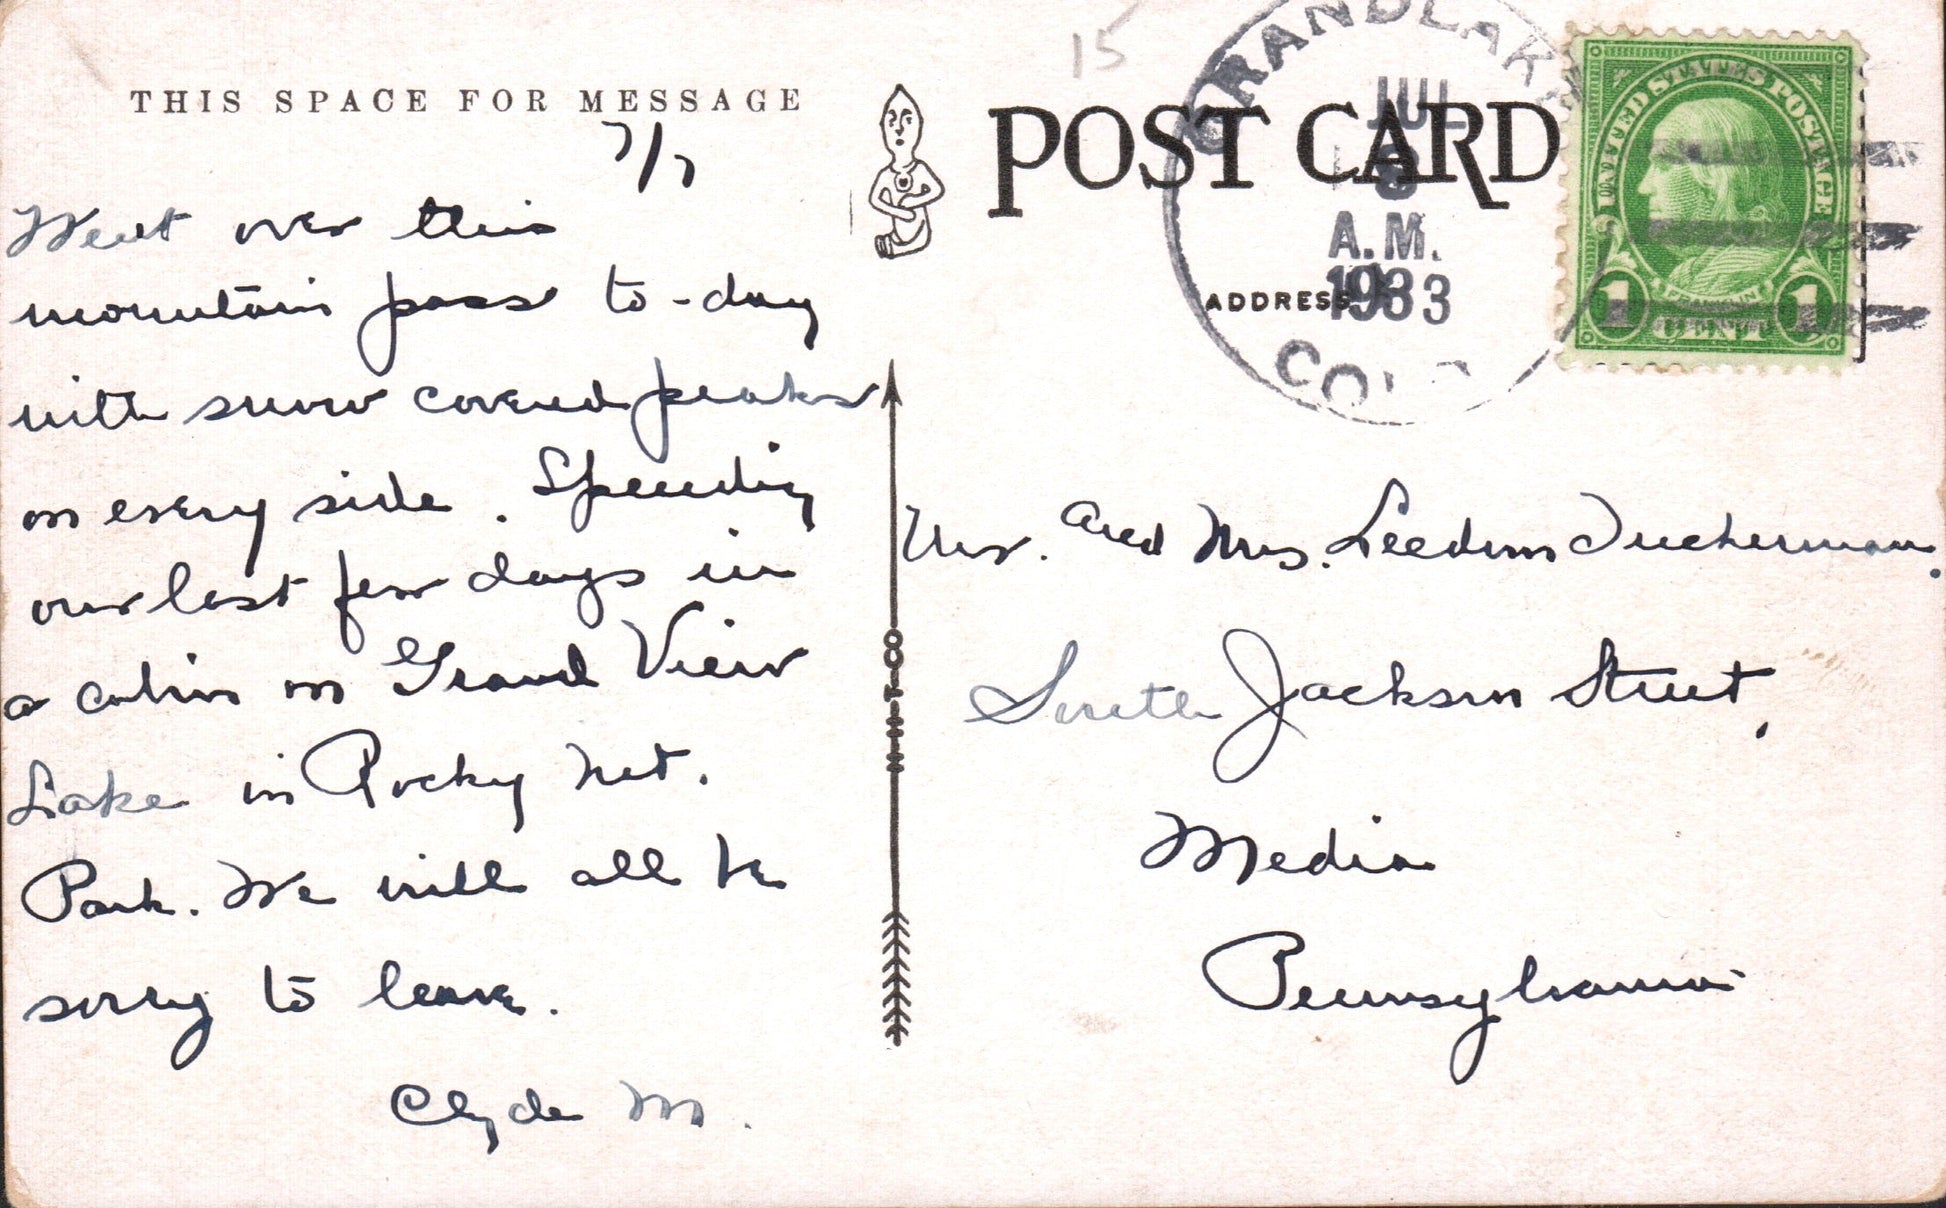 15
THIS SPACE FOR MESSAGE
7/7
Went over this
mountain pass to-day
with snow covered peaks
on every side. Spending
our last few days in
a cabin on Grand View
Lake in Rocky Mt.
Park. We will all be
sorry to leave.
Clyde M.
POST CARD
GRAND LAKE
JUL
8
A.M.
1933
COLO
ADDRESS
UNITED STATES POSTAGE
FRANKLIN
1 CENT 1
Mr. and Mrs. Leedom Tuckerman.
South Jackson Street,
Media
Pennsylvania